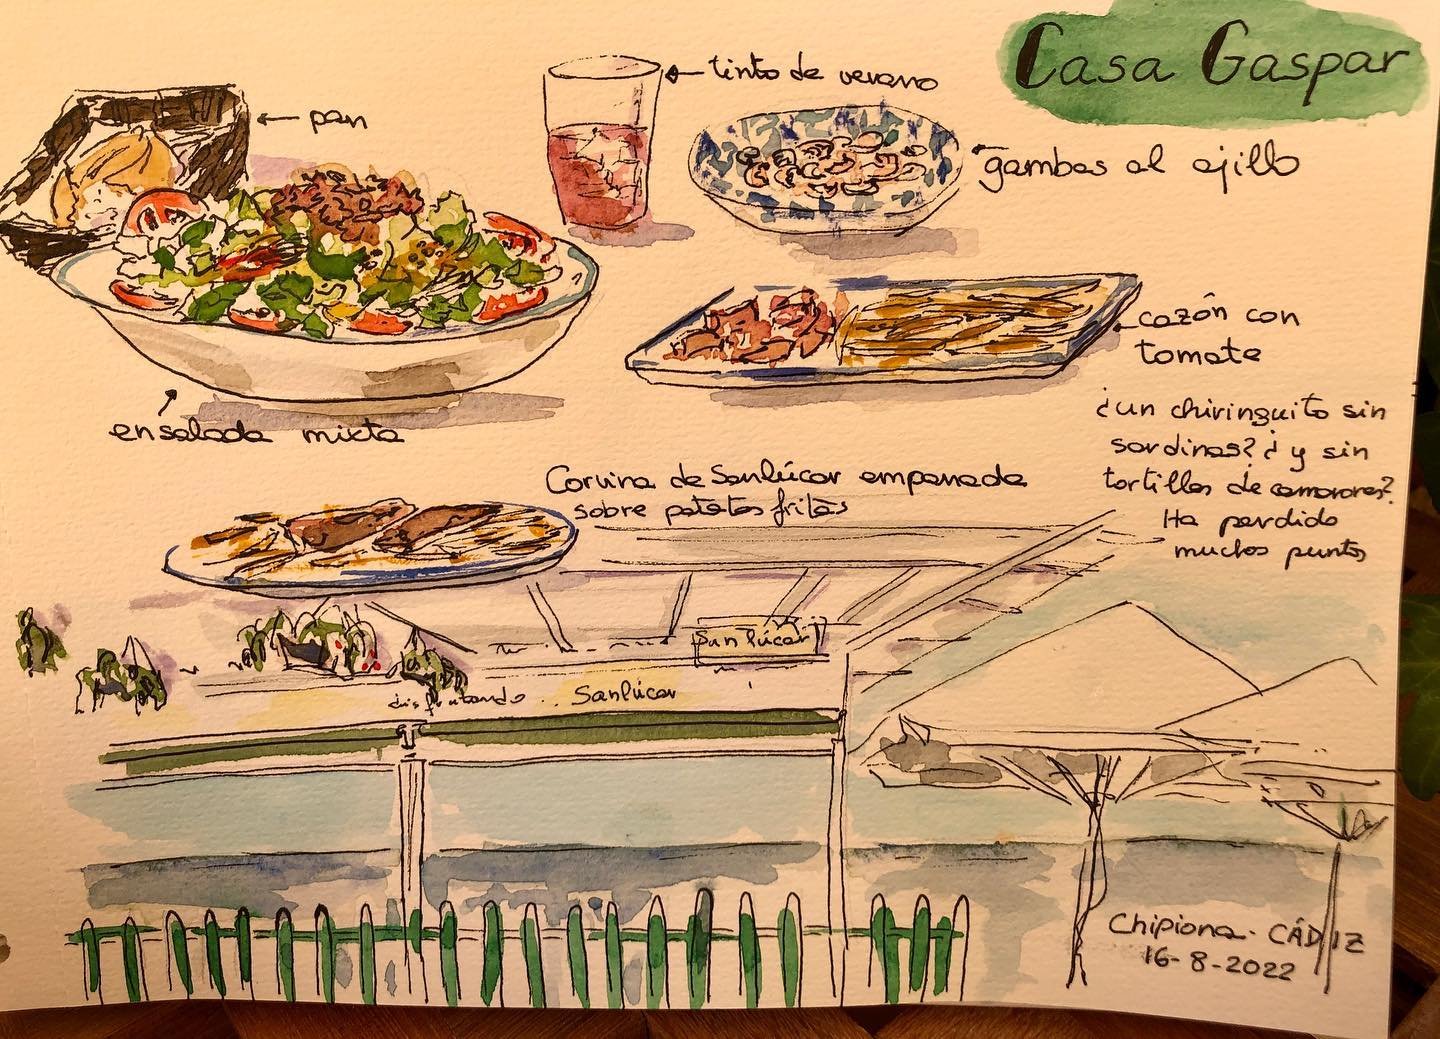 Casa Gaspar
tinto de verano
pan
gambas al ajillo
cazón con
tomate
ensalada mixta
¿un chiringuito sin
sardinas? ¿y sin
tortillas de camarones?
Ha perdido
muchos puntos
Corvina de Sanlúcar empanada
sobre patatas fritas
Sanlúcar
disfrutando .. Sanlúcar
Chipiona. CÁDIZ
16-8-2022